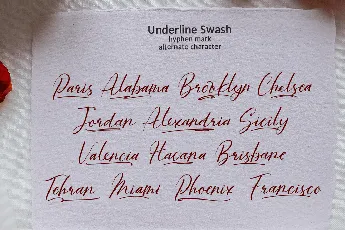 Underline Swash
hyphen mark
alternate character
Paris Alabama Brooklyn Chelsea
Jordan Alexandria Sicily
Valencia Hacana Brisbane
Tehran Miami Phoenix Francisco